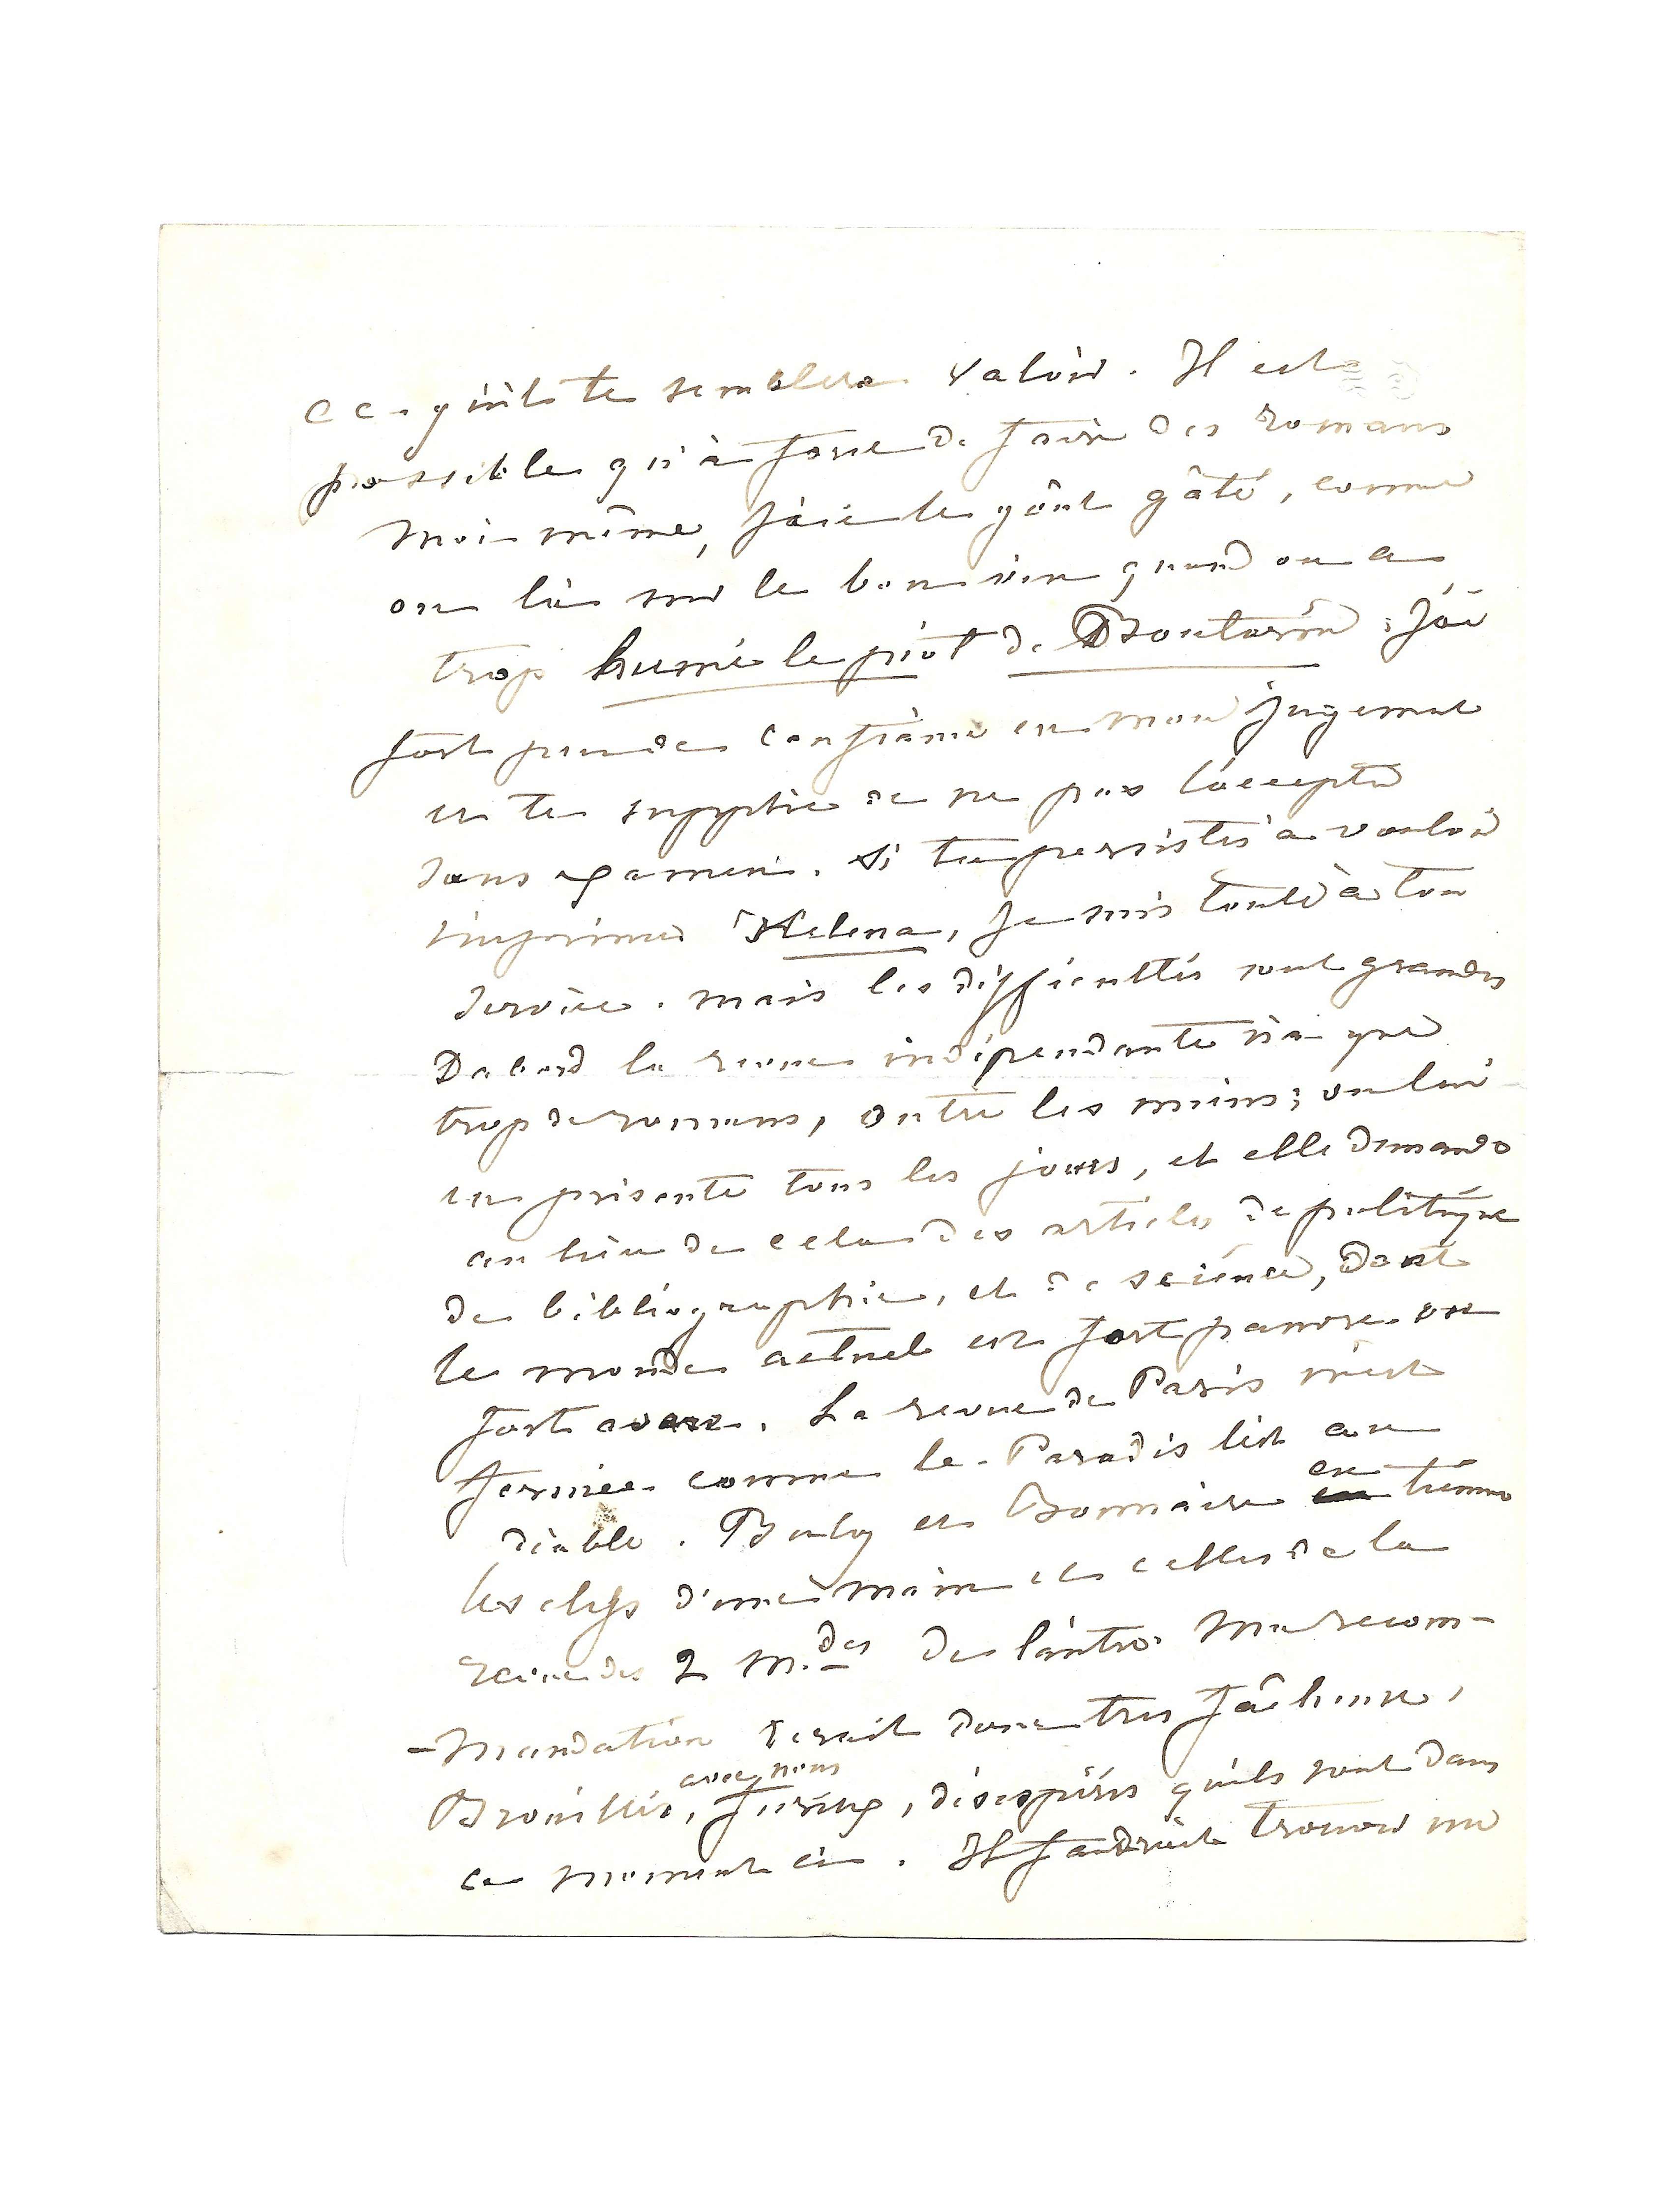 ce qu'il te semblera valoir. Il est
possible qu'à force de faire des romans
moi même, j'aie le goût gâté, comme
on l'a sur le bon vin quand on a
trop humé le piot de : j'ai
fort peu de confiance en mon jugement
et te supplie de ne pas l'accepter
sans examen. Si tu persistes à vouloir
imprimer Helena, je suis toute à ton
service. mais les difficultés sont grandes
Dabord la revue indépendante n'a que
trop de romans, entre les mains; on lui
en présente tous les jours, et elle demande
au lieu de cela des articles de politique
de bibliographie, et de science, dont
le monde actuel est fort pauvre ou
fort avare. La revue de Paris m'est
fermée comme le Paradis l'est au
diable. Buloz et Bonnaire en tiennent
les clefs d'une main et celles de la
revue des 2 M.des de l'autre. Ma recom-
-mandation serait donc très fâcheuse,
Brouillés, avec nous furieux, désespérés qu'ils sont dans
ce moment ci. Il faudrait trouver un